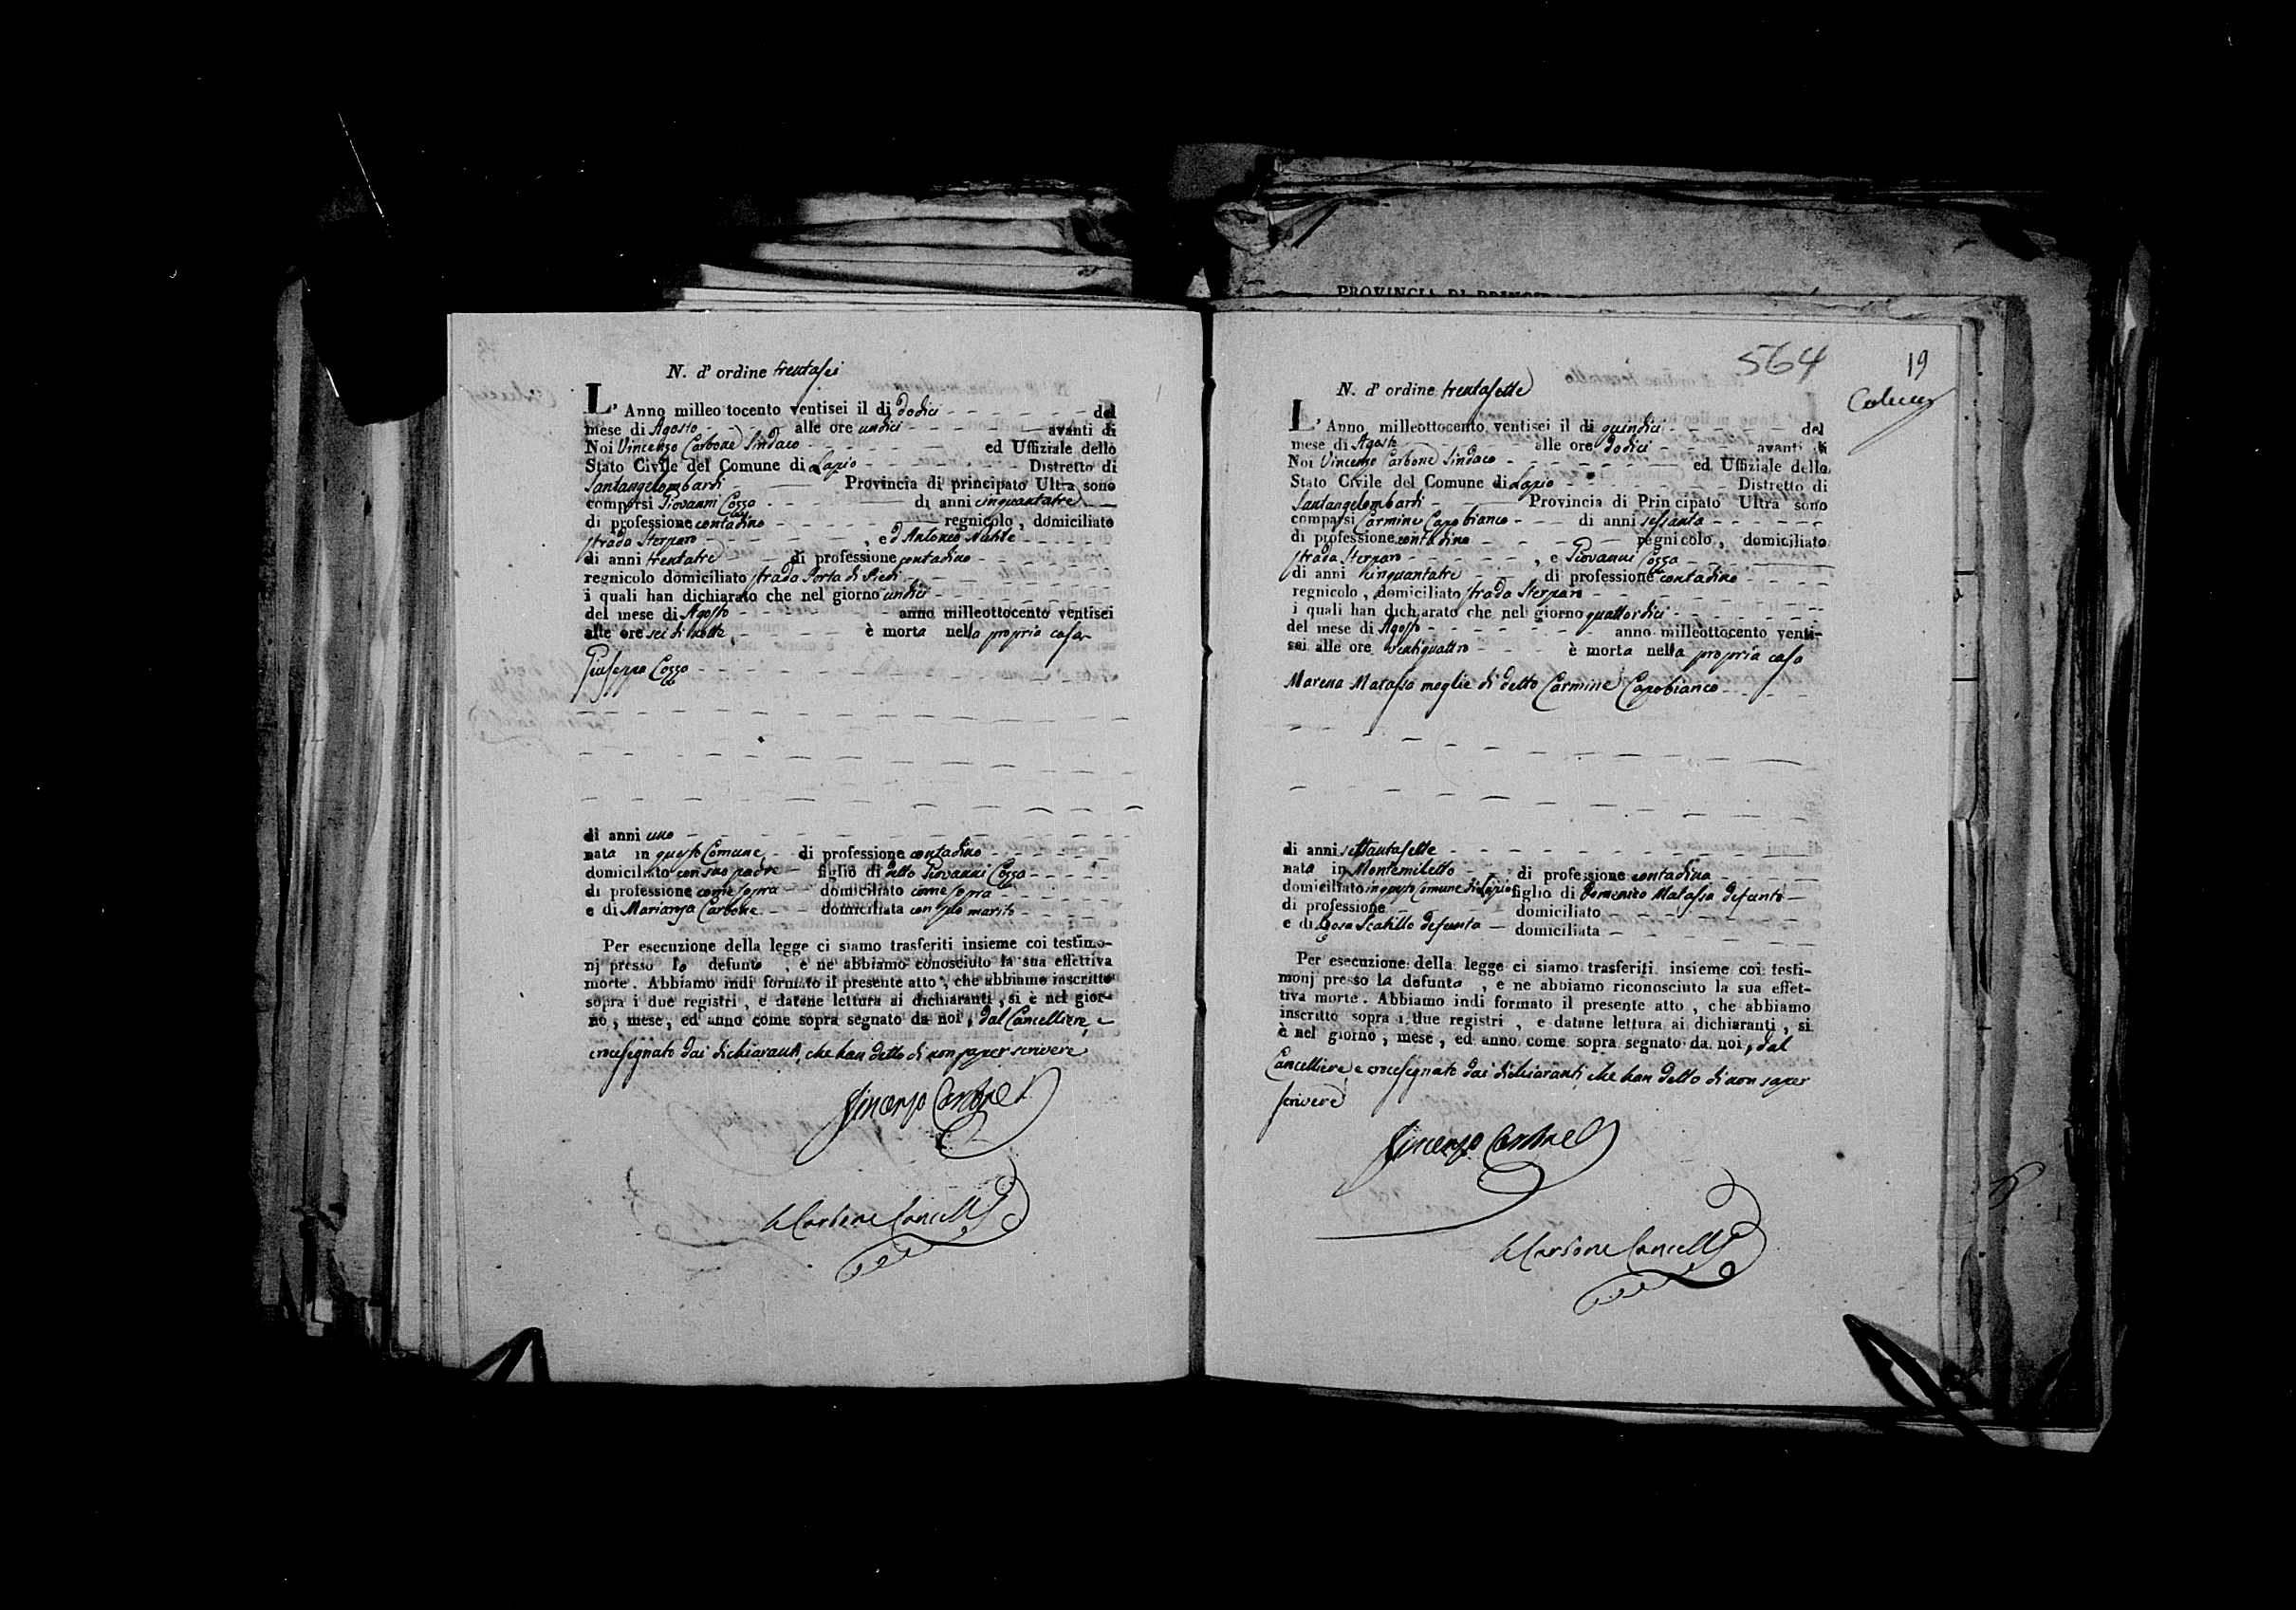 N. d' ordine trentasei
L' Anno milleo tocento ventisei il di dodici del
mese di Agosto alle ore undici avanti di
Noi Vincenzo Carbone Sindaco ed Uffiziale dello
Stato Civile del Comune di Lapio Distretto di
Santangelombardi Provincia di principato Ultra sono
comparsi Giovanni Cozzo di anni cinquantatre
di professione contadino regnicolo, domiciliato
strada Sterparo, ed Antonio
di anni trentatre di professione contadino
regnicolo domiciliato strada Porta di Piedi
i quali han dichiarato che nel giorno undici
del mese di Agosto anno milleottocento ventisei
alle ore sei di notte è morta nella propria casa
Giuseppe Cozzo
di anni uno
nata in questo Comune di professione contadino
domiciliato con suo padre figlio di detto Giovanni Cozzo
di professione come sopra domiciliato come sopra
e di Marianza Carbone domiciliata con suo marito
Per esecuzione della legge ci siamo trasferiti insieme coi testimo-
nj presso lo defunto, e ne abbiamo conosciuto la sua effettiva
morte. Abbiamo indi formato il presente atto, che abbiamo inscritto
sopra i due registri, e datene lettura ai dichiaranti, si è nel gior-
no, mese, ed anno come sopra segnato da noi, dal Cancelliere, e
crocesegnato dai dichiaranti, che han detto di non saper scrivere
Vincenzo Carbone
Carbone Cancell
PROVINCIA DI PRINCIP
564
19
N. d' ordine trentasette
L' Anno milleottocento ventisei il di quindici del
mese di Agosto alle ore dodici avanti di
Noi Vincenzo Carbone Sindaco ed Uffiziale dello
Stato Civile del Comune di Lapio Distretto di
Santangelombardi Provincia di Principato Ultra sono
comparsi Carmine Capobianco di anni sessanta
di professione contadino regnicolo, domiciliato
strada Sterparo, e Giovanni Cozzo
di anni cinquantatre di professione contadino
regnicolo, domiciliato strada Sterparo
i quali han dichiarato che nel giorno quattordici
del mese di Agosto anno milleottocento venti-
sei alle ore ventiquattro è morta nella propria casa
Marena Matassa moglie di detto Carmine Capobianco
di anni settantasette
nata in Montemiletto di professione contadina
domiciliato in questo Comune di Lapio figlio di Domenico Matassa defunto
di professione domiciliato
e di Rosa Scatillo defunta domiciliata
Per esecuzione della legge ci siamo trasferiti insieme coi testi-
monj presso la defunta, e ne abbiamo riconosciuto la sua effet-
tiva morte. Abbiamo indi formato il presente atto, che abbiamo
inscritto sopra i due registri, e datane lettura ai dichiaranti, si
è nel giorno, mese, ed anno come sopra segnato da noi, dal
Cancelliere, e crocesegnato dai dichiaranti, che han detto di non saper
scrivere
Vincenzo Carbone
Carbone Cancell